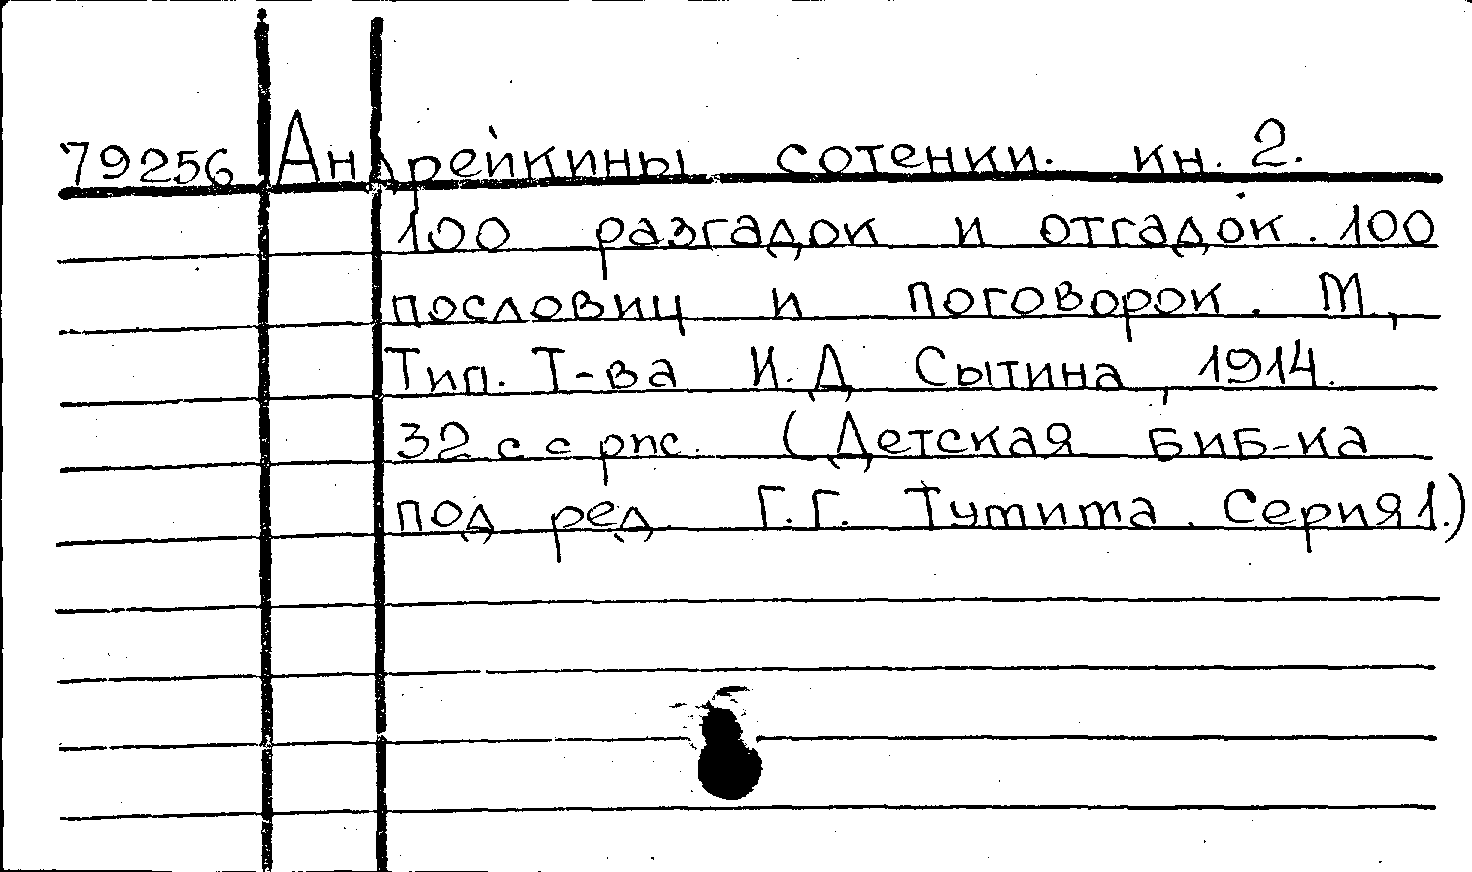 79256 Андрейкины сотенки. кн. 2.
100 разгадок и отгадок. 100
пословиц и поговорок. М.,
Тип. Т-ва И.Д Сытина, 1914.
32 с с рис. (Детская биб-ка
под ред. Г.Г. Тумима. Серия 1.)